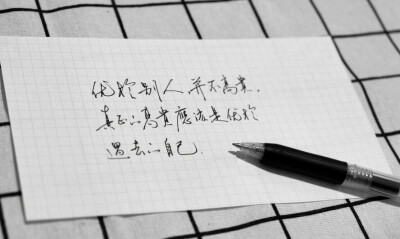 优於别人并不高贵.
真正的高贵應该是优於
过去的自己.